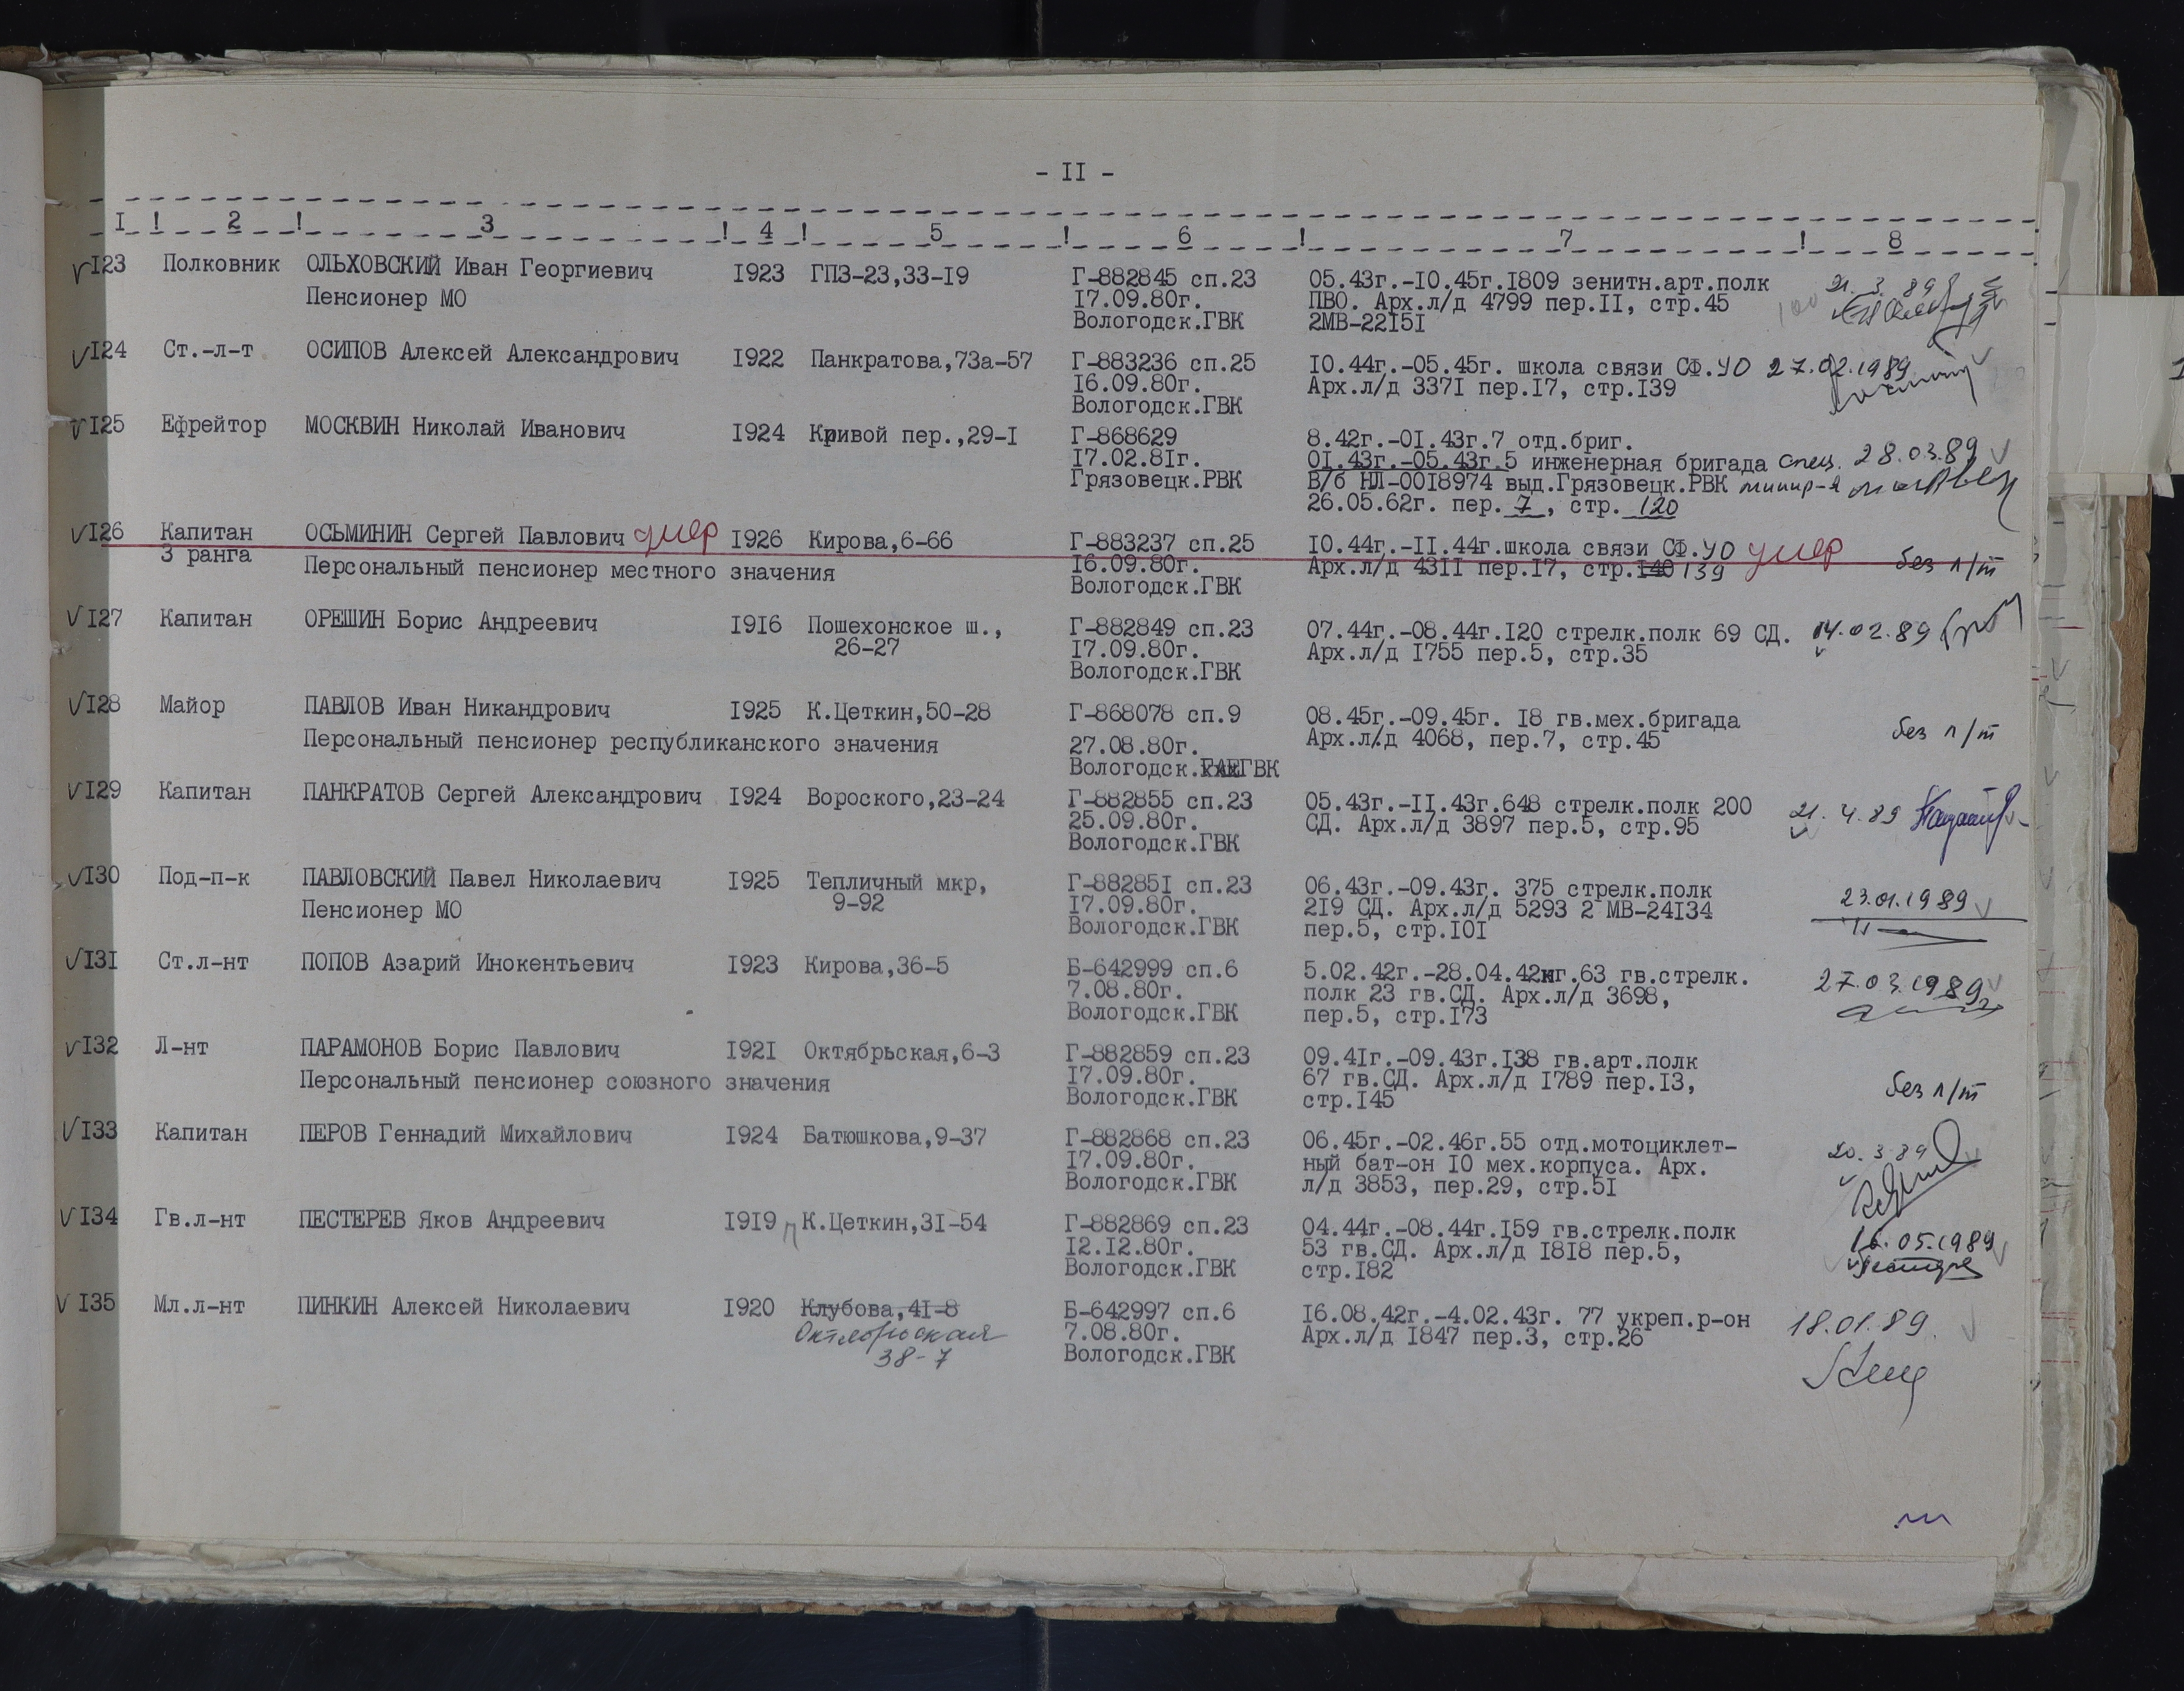 - II -
I ! 2 ! 3 ! 4 ! 5 ! 6 ! 7 ! 8
I23 Полковник ОЛЬХОВСКИЙ Иван Георгиевич I923 ГПЗ-23,33-I9 Г-882845 сп.23 05.43г.-I0.45г.I809 зенитн.арт.полк 21.3.89
Пенсионер МО I7.09.80г. ПВО. Арх.л/д 4799 пер.II, стр.45
Вологодск.ГВК 2МВ-22I5I
I24 Ст.-л-т ОСИПОВ Алексей Александрович I922 Панкратова,73а-57 Г-883236 сп.25 I0.44г.-05.45г. школа связи СФ.УО 27.02.1989
I6.09.80г. Арх.л/д 337I пер.I7, стр.I39
Вологодск.ГВК
I25 Ефрейтор МОСКВИН Николай Иванович I924 Кривой пер.,29-I Г-868629 8.42г.-0I.43г.7 отд.бриг.
I7.02.8Iг. 0I.43г.-05.43г.5 инженерная бригада спец. 28.03.89
Грязовецк.РВК В/б НЛ-00I8974 выд.Грязовецк.РВК минир-я
26.05.62г. пер. 7, стр. 120
I26 Капитан ОСЬМИНИН Сергей Павлович умер I926 Кирова,6-66 Г-883237 сп.25 I0.44г.-II.44г.школа связи СФ.УО умер
3 ранга Персональный пенсионер местного значения I6.09.80г. Арх.л/д 43II пер.I7, стр.I40 139 без п/т
Вологодск.ГВК
I27 Капитан ОРЕШИН Борис Андреевич I9I6 Пошехонское ш., Г-882849 сп.23 07.44г.-08.44г.I20 стрелк.полк 69 СД. 14.02.89
26-27 I7.09.80г. Арх.л/д I755 пер.5, стр.35
Вологодск.ГВК
I28 Майор ПАВЛОВ Иван Никандрович I925 К.Цеткин,50-28 Г-868078 сп.9 08.45г.-09.45г. I8 гв.мех.бригада
Персональный пенсионер республиканского значения 27.08.80г. Арх.л/д 4068, пер.7, стр.45 без п/т
Вологодск.ГВК
I29 Капитан ПАНКРАТОВ Сергей Александрович I924 Вороского,23-24 Г-882855 сп.23 05.43г.-II.43г.648 стрелк.полк 200 21.4.89
25.09.80г. СД. Арх.л/д 3897 пер.5, стр.95
Вологодск.ГВК
I30 Под-п-к ПАВЛОВСКИЙ Павел Николаевич I925 Тепличный мкр, Г-88285I сп.23 06.43г.-09.43г. 375 стрелк.полк 23.01.1989
Пенсионер МО 9-92 I7.09.80г. 2I9 СД. Арх.л/д 5293 2 МВ-24I34
Вологодск.ГВК пер.5, стр.I0I
I3I Ст.л-нт ПОПОВ Азарий Инокентьевич I923 Кирова,36-5 Б-642999 сп.6 5.02.42г.-28.04.42нг.63 гв.стрелк. 27.03.1989
7.08.80г. полк 23 гв.СД. Арх.л/д 3698,
Вологодск.ГВК пер.5, стр.I73
I32 Л-нт ПАРАМОНОВ Борис Павлович I92I Октябрьская,6-3 Г-882859 сп.23 09.4Iг.-09.43г.I38 гв.арт.полк
Персональный пенсионер союзного значения I7.09.80г. 67 гв.СД. Арх.л/д I789 пер.I3, без п/т
Вологодск.ГВК стр.I45
I33 Капитан ПЕРОВ Геннадий Михайлович I924 Батюшкова,9-37 Г-882868 сп.23 06.45г.-02.46г.55 отд.мотоциклет- 20.3.89
I7.09.80г. ный бат-он I0 мех.корпуса. Арх.
Вологодск.ГВК л/д 3853, пер.29, стр.5I
I34 Гв.л-нт ПЕСТЕРЕВ Яков Андреевич I9I9 К.Цеткин,3I-54 Г-882869 сп.23 04.44г.-08.44г.I59 гв.стрелк.полк 16.05.1989
I2.I2.80г. 53 гв.СД. Арх.л/д I8I8 пер.5,
Вологодск.ГВК стр.I82
I35 Мл.л-нт ПИНКИН Алексей Николаевич I920 Клубова,4I-8 Б-642997 сп.6 I6.08.42г.-4.02.43г. 77 укреп.р-он 18.01.89.
Октябрьская 7.08.80г. Арх.л/д I847 пер.3, стр.26
38-7 Вологодск.ГВК